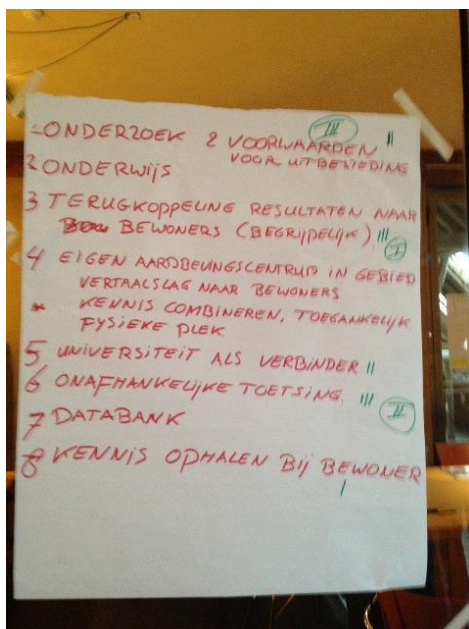 1 ONDERZOEK & VOORWAARDEN III II
VOOR UITBESTEDING
2 ONDERWIJS
3 TERUGKOPPELING RESULTATEN NAAR
BEWONERS (BEGRIJPELIJK) III I
4 EIGEN AARDBEVINGSCENTRUM IN GEBIED
VERTAALSLAG NAAR BEWONERS
* KENNIS COMBINEREN, TOEGANKELIJK
FYSIEKE PLEK
5 UNIVERSITEIT ALS VERBINDER II
6 ONAFHANKELIJKE TOETSING. III II
7 DATABANK
8 KENNIS OPHALEN BIJ BEWONER
I